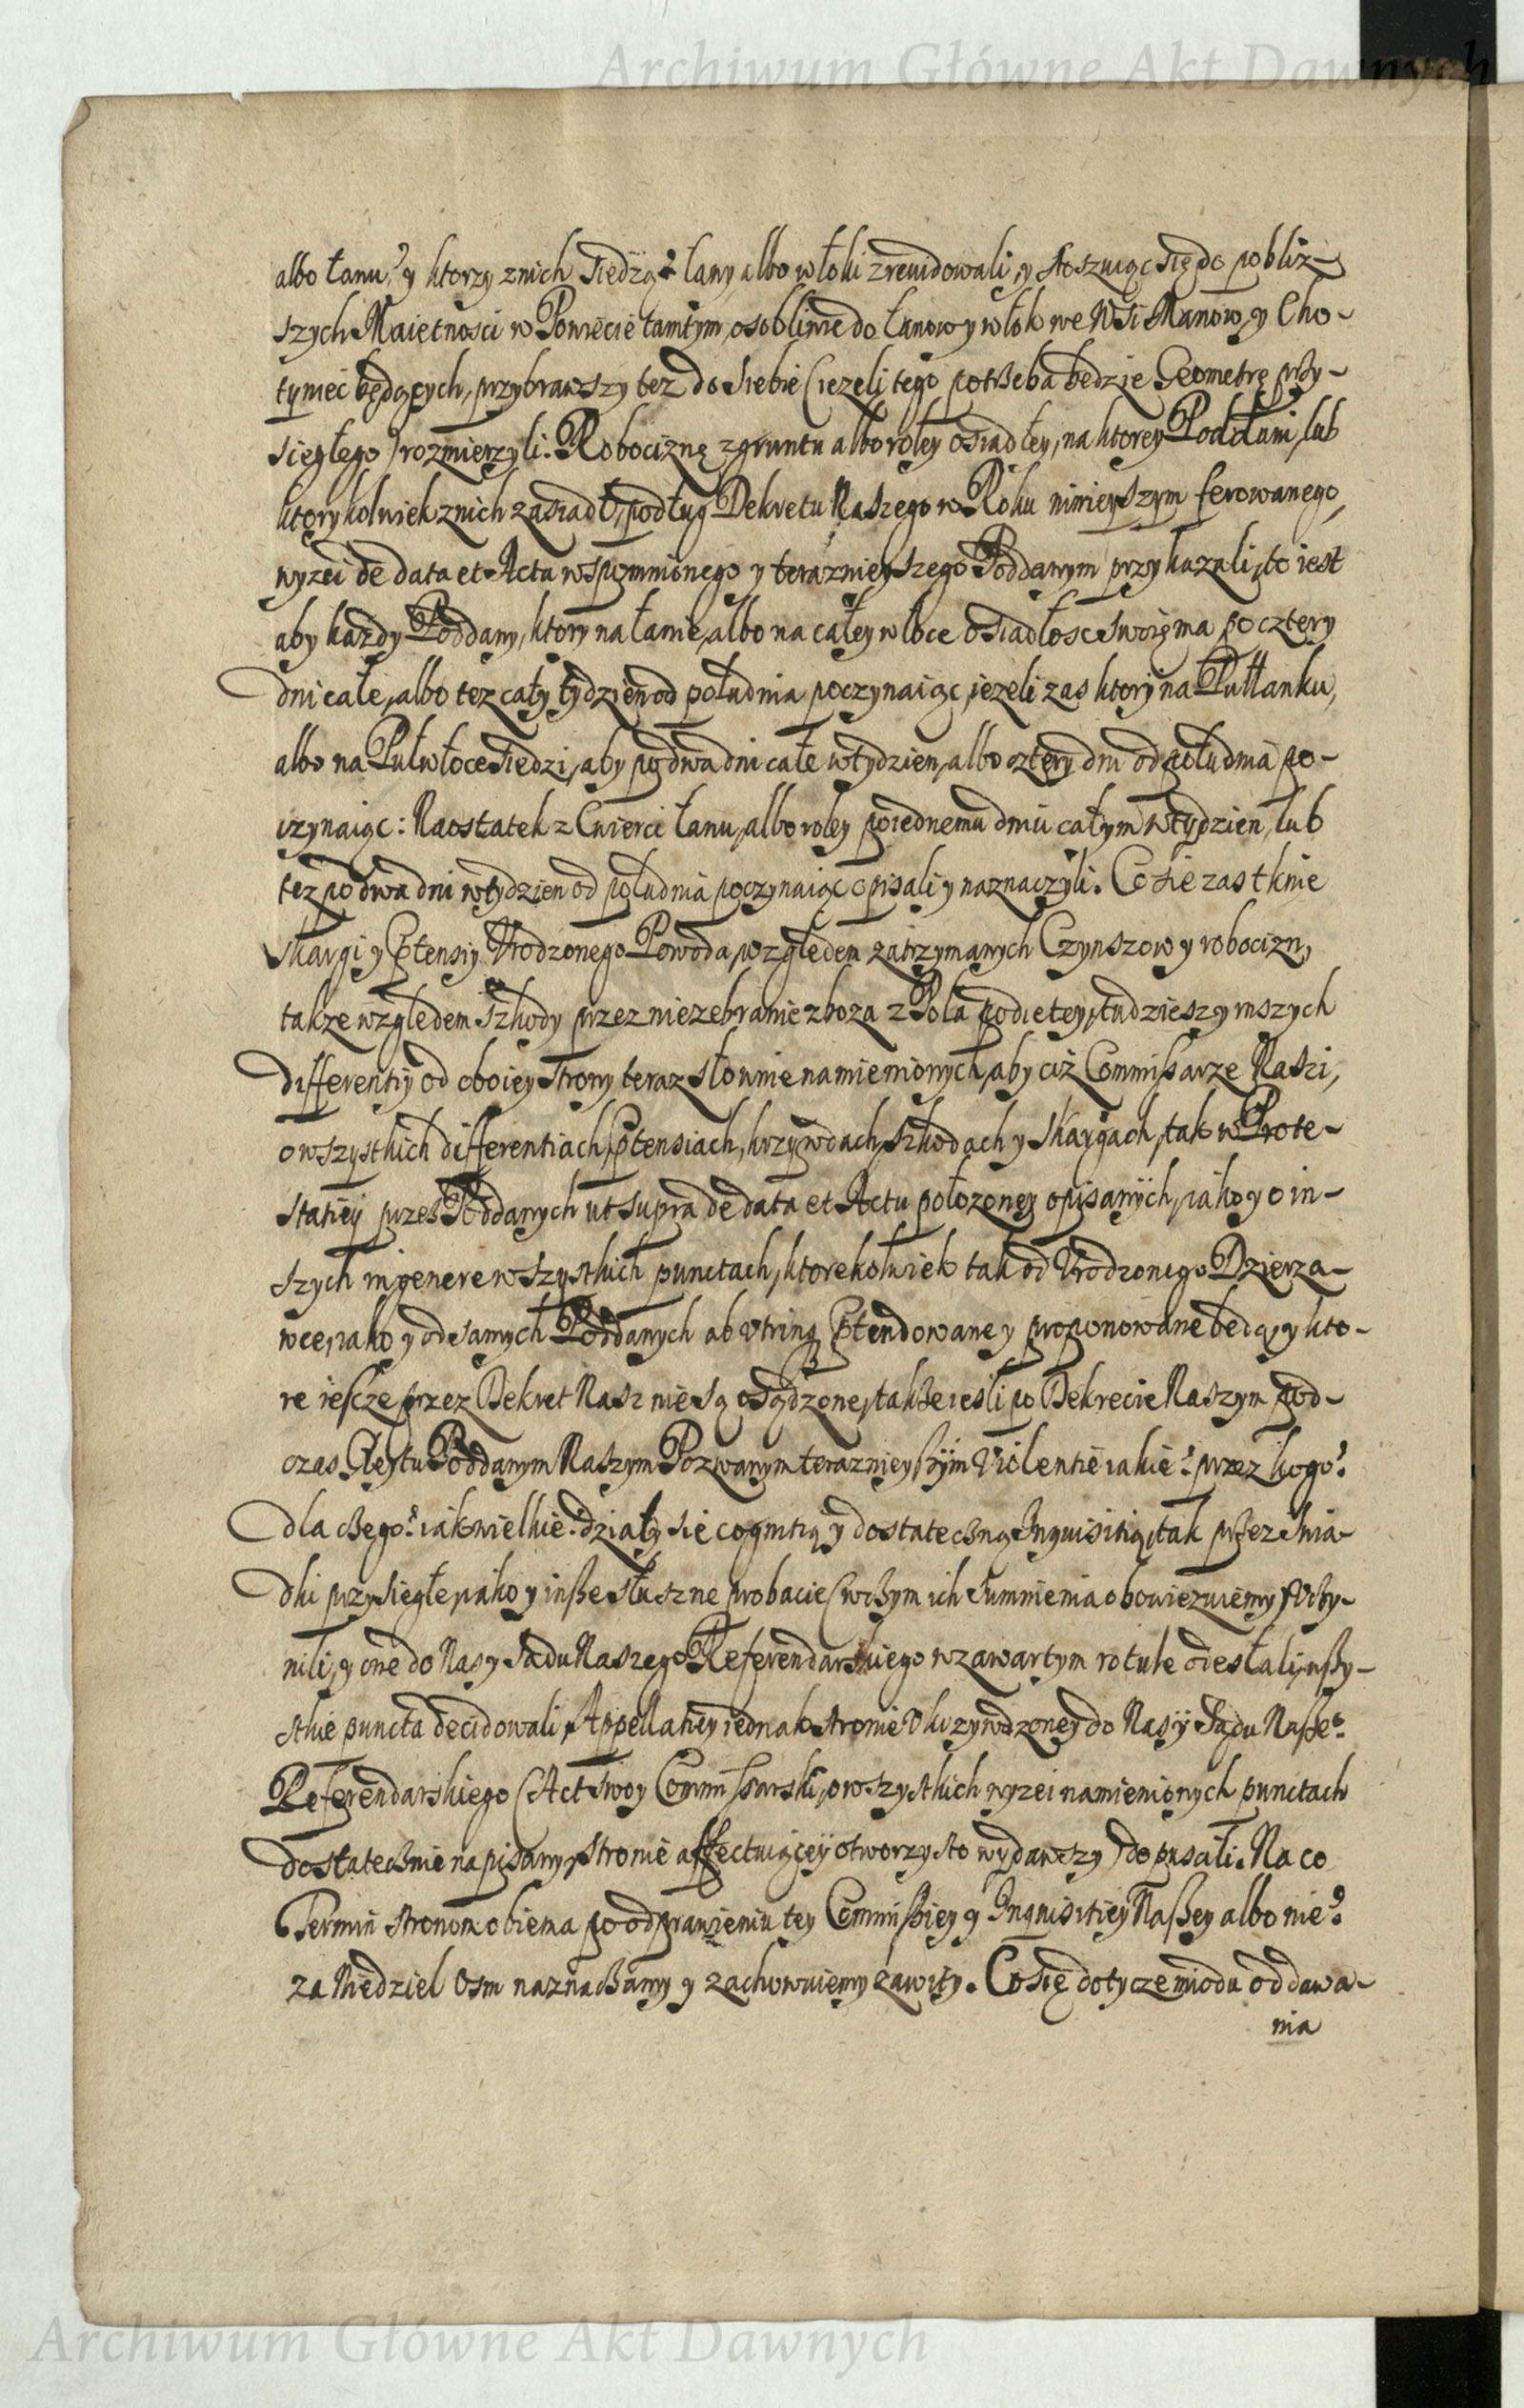 Archiwum Główne Akt Dawnych
albo łanu? y ktorzy znich siedzą? łany albo włoki zrewidowali, y stoszuiąc się do pobliz-
szych Maiętnosci w Powiecie tamtym, osobliwie do łanow y włok we Wsi Manow, y Cho-
tymiec będących, przybrawszy tez do siebie (iezeli tego potrzeba będzie Geometrę przy-
sięgłego) rozmierzyli. Robociznę z gruntu albo roley osiadłey, na ktorey Poddani, lub
ktorykolwiek znich zasiadł, podług Dekretu Naszego w Roku ninieyszym ferowanego,
wyzei de data et Acta wspomnionego y teraznieyszego Poddanym przykazali, to iest
aby kazdy Poddany, ktory na łanie, albo na całey włoce osiadłosc swoię ma, po cztery
dni całe, albo tez cały tydzien od południa poczynaiąc, iezeli zas ktory na Pułłanku,
albo na Pułwłoce siedzi, aby po dwa dni całe wtydzien, albo cztery dni od południa po-
czynaiąc: Naostatek z Cwierci łanu, albo roley po iednemu dniu całym wtydzien, lub
tez po dwa dni wtydzien od południa poczynaiąc opisali y naznaczyli. Co sie zas tknie
skargi y Ptensiy Vrodzonego Powoda, względem zatrzymanych Czynszow y robocizn,
takze względem szkody przez niezebranie zboza z Pola podietey, tudziesz y inszych
differentiy od oboiey strony teraz słownie namienionych, aby ciż Commissarze Naszi,
o wszystkich differentiach, Ptensiach, krzywdach, szkodach y skargach, tak w Prote-
statiey przez Poddanych ut supra de data et Actu położoney opisanych, iako y o in-
szych in genere wszystkich punctach, ktorekolwiek tak od Vrodzonego Dzierza-
wce, iako y od samych Poddanych ab utrinq Ptendowane y proponowane będą, y kto-
re ieszcze przez Dekret Nasz nie są osądzone, takze iesli po Dekrecie Naszym pod-
czas Gleytu Poddanym Naszym Pozwanym teraznieyszym Violentie iakie? przez kogo?
dla czego? iak wielkie? działy się cognitią y dostateczną Inquisitią, tak przez swia-
dki przysięgłe, iako y insze słuszne probacie (w czym ich sumnienia obowięzuiemy) vczy-
nili, y one do Nas y Sądu Naszego Referendarskiego w zawartym rotule odesłali, wszy-
stkie puncta decidowali, Appellatiey iednak stronie Vkrzywdzoney do Nas y Sądu Nasze?
Referendarskiego (Act swoy Commissarski, o wszystkich wyzei namienionych punctach
dostatecznie napisany, stronie affectuiącey otworzysto wydawszy) dopuscili. Na co
Termin stronom obiema po odprawieniu tey Commissiey y Inquisitiey Naszey albo nie?
za Niedziel Osm naznaczamy y zachowuiemy zawity. Co się dotycze miodu oddawa-
nia
Archiwum Główne Akt Dawnych